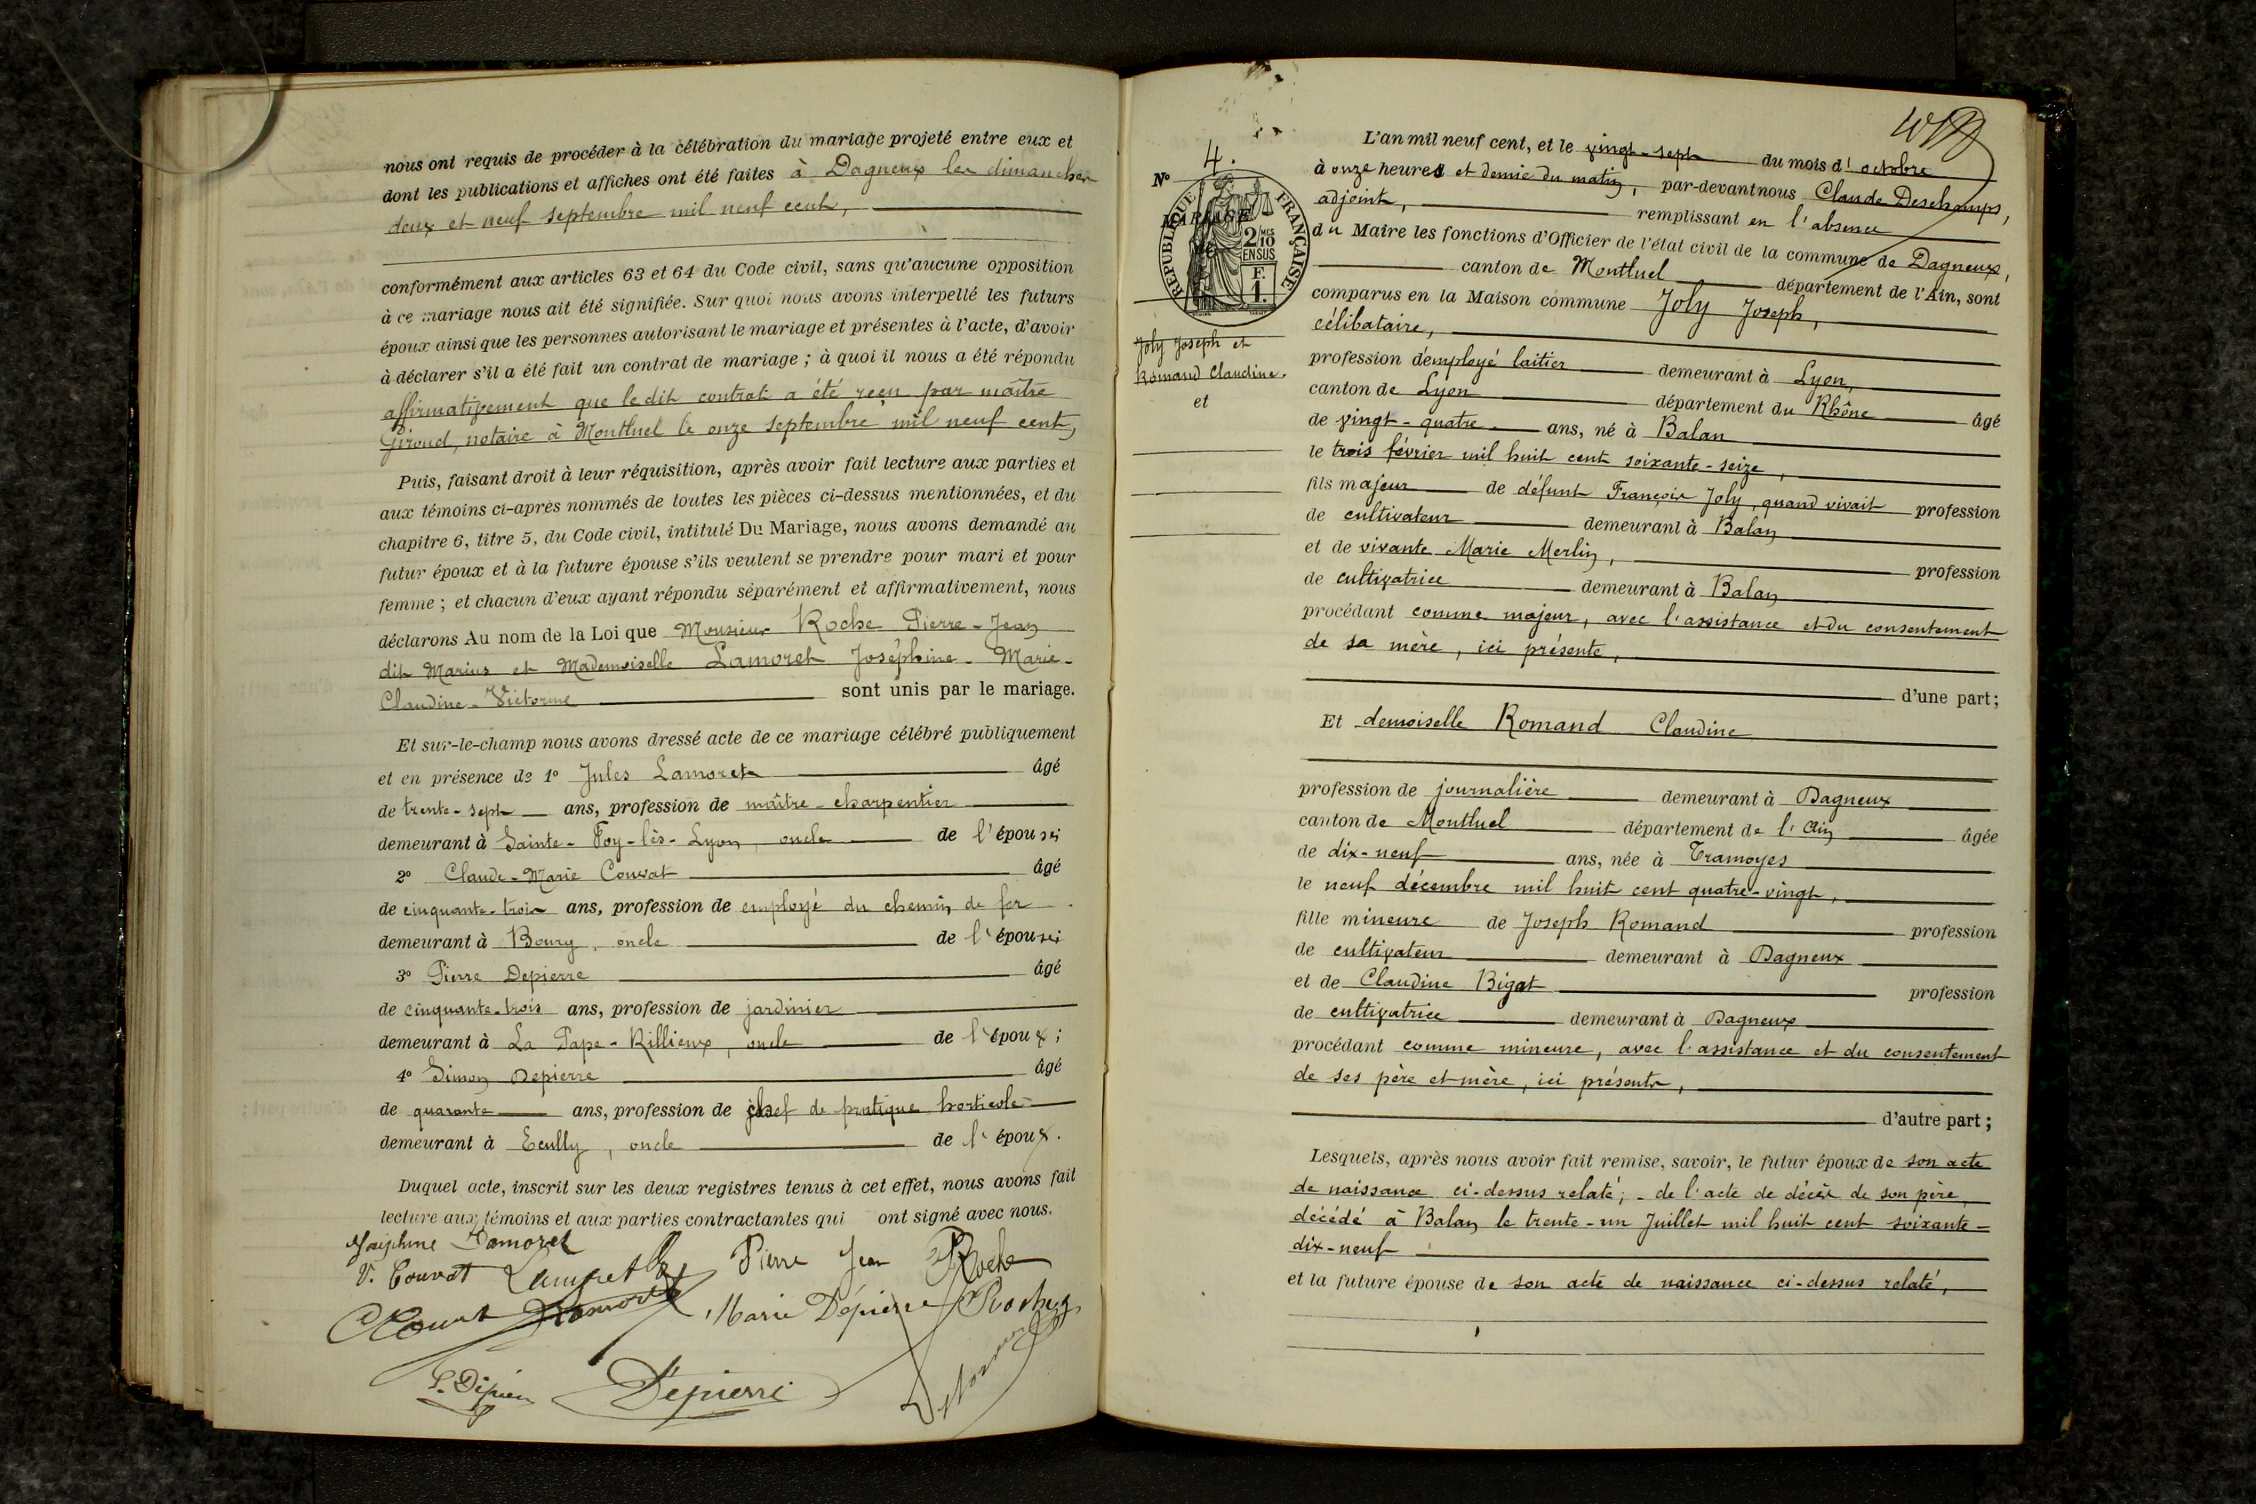 nous ont requis de procéder à la célébration du mariage projeté entre eux et
dont les publications et affiches ont été faites à Dagneux les dimanches
deux et neuf septembre mil neuf cent,
conformément aux articles 63 et 64 du Code civil, sans qu'aucune opposition
à ce mariage nous ait été signifiée. Sur quoi nous avons interpellé les futurs
époux ainsi que les personnes autorisant le mariage et présentes à l'acte, d'avoir
à déclarer s'il a été fait un contrat de mariage ; à quoi il nous a été répondu
affirmativement que le dit contrat a été reçu par maître
Giroud, notaire à Montluel le onze septembre mil neuf cent,
Puis, faisant droit à leur réquisition, après avoir fait lecture aux parties et
aux témoins ci-après nommés de toutes les pièces ci-dessus mentionnées, et du
chapitre 6, titre 5, du Code civil, intitulé Du Mariage, nous avons demandé au
futur époux et à la future épouse s'ils veulent se prendre pour mari et pour
femme ; et chacun d'eux ayant répondu séparément et affirmativement, nous
déclarons Au nom de la Loi que Monsieur Roche Pierre-Jean
dit Marius et Mademoiselle Lamoret Joséphine-Marie-
Claudine-Victorine sont unis par le mariage.
Et sur-le-champ nous avons dressé acte de ce mariage célébré publiquement
et en présence de 1º Jules Lamoret âgé
de trente-sept ans, profession de maître-charpentier
demeurant à Sainte-Foy-lès-Lyon, oncle de l'épouse;
2º Claude-Marie Convat âgé
de cinquante-trois ans, profession de employé du chemin de fer
demeurant à Bourg, oncle de l'épouse;
3º Pierre Depierre âgé
de cinquante-trois ans, profession de jardinier
demeurant à La Pape-Rillieux, oncle de l'époux ;
4º Simon Depierre âgé
de quarante ans, profession de chef de pratique horticole
demeurant à Ecully, oncle de l'époux.
Duquel acte, inscrit sur les deux registres tenus à cet effet, nous avons fait
lecture aux témoins et aux parties contractantes qui ont signé avec nous.
Joséphine Lamoret
V. Convat Pierre Jean Roche
Marie Dépierre
Dépierre
Nº 4.
MARIAGE
RÉPUBLIQUE FRANÇAISE
2/10 MES
EN SUS
F.
1.
Joly Joseph et
Romand Claudine.
et
L'an mil neuf cent, et le vingt-sept du mois d'octobre
à onze heures et demie du matin, par-devant nous Claude Deschamps,
adjoint, remplissant en l'absence
du Maire les fonctions d'Officier de l'état civil de la commune de Dagneux,
canton de Montluel département de l'Ain, sont
comparus en la Maison commune Joly Joseph,
célibataire,
profession d'employé laitier demeurant à Lyon,
canton de Lyon département du Rhône âgé
de vingt-quatre ans, né à Balan
le trois février mil huit cent soixante-seize,
fils majeur de défunt François Joly, quand vivait profession
de cultivateur demeurant à Balan
et de vivante Marie Merlin, profession
de cultivatrice demeurant à Balan
procédant comme majeur, avec l'assistance et du consentement
de sa mère, ici présente,
d'une part ;
Et demoiselle Romand Claudine
profession de journalière demeurant à Dagneux
canton de Montluel département de l'Ain âgée
de dix-neuf ans, née à Tramoyes
le neuf décembre mil huit cent quatre-vingt,
fille mineure de Joseph Romand profession
de cultivateur demeurant à Dagneux
et de Claudine Bigat profession
de cultivatrice demeurant à Dagneux
procédant comme mineure, avec l'assistance et du consentement
de ses père et mère, ici présents,
d'autre part ;
Lesquels, après nous avoir fait remise, savoir, le futur époux de son acte
de naissance ci-dessus relaté; - de l'acte de décès de son père,
décédé à Balan le trente-un Juillet mil huit cent soixante-
dix-neuf
et la future épouse de son acte de naissance ci-dessus relaté,